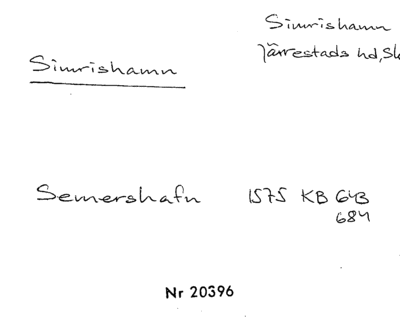 Simrishamn
Järrestads hd, Sk
Simrishamn
Semershafn 1575 KB GHB
684
Nr 20396